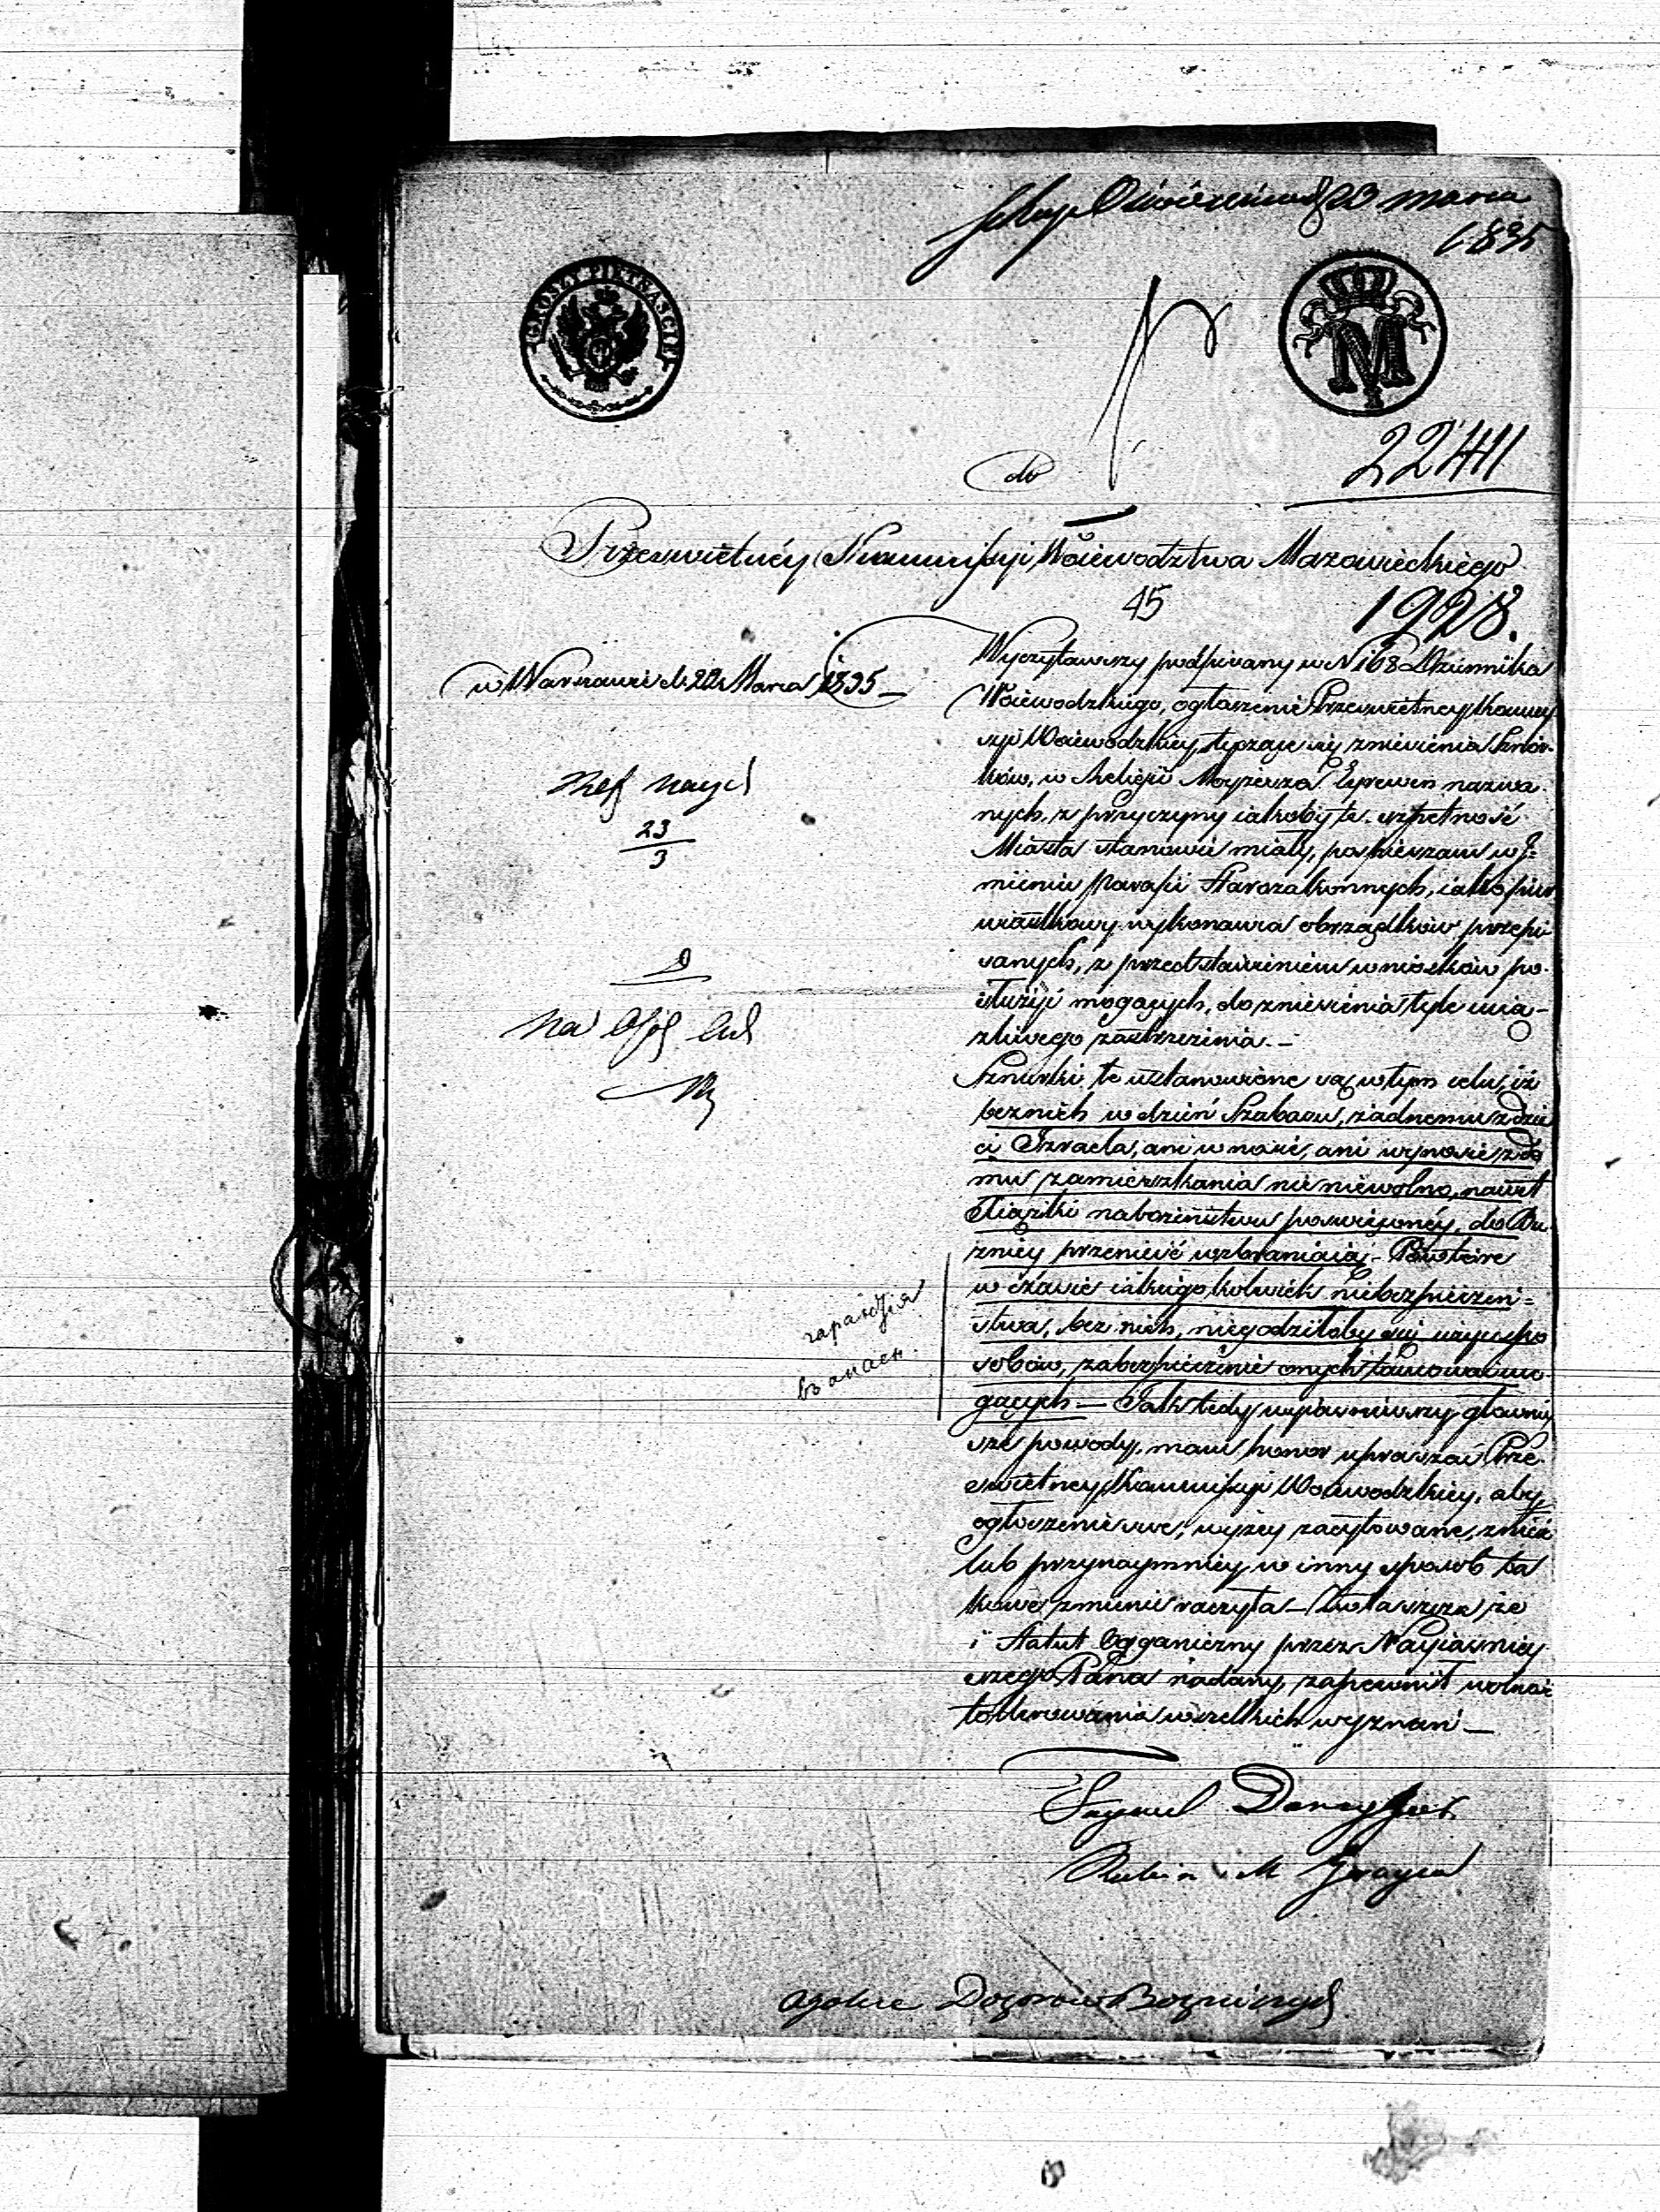 23 marca
1835
GROSZY PIĘTNAŚCIE
M
22441
do
Prześwietnéy Kommissyi Woiewodztwa Mazowieckiego
45
1928.
w Warszawie d. 22 Marca 1835 —
Wyczytawszy podpisany w N 168 Dziennika
Woiewodzkiego, ogłoszenie Prześwietney Kommis
syi Woiewodzkiey, tyczące się zniesienia Sznur-
ków, w Religii Moyżesza Eyrewen nazwa-
nych, z przyczyny iakoby te szpetność
Miasta stanowić miały, pospieszam w I-
mieniu Parafii Starozakonnych, iako pier
wiastkowy wykonawca obrządków przepi-
sanych, z przedstawieniem wniosków po-
służyć mogących, do zniesienia tyle ucią-
żliwego zastrzeżenia. —
Sznurki te ustanowione są w tym celu, iż
bez nich w dzień Szabasu, żadnemu z dzie
ci Izraela, ani wnosić, ani wynosić z do
mu zamieszkania nic niewolno, nawet
Książki nabożeństwu poswięconéy, do Bu-
żnicy przenieść wzbraniaią — Powtóre
w czasie iakiego kolwiek niebezpieczeń-
stwa, bez nich, niegodziłoby się użyć spo
sobów, zabezpieczenie onych tamować mo-
gących — Tak tedy wyiaśniwszy główniey
sze powody, mam honor upraszać Prze-
świetney Kommissyi Woiewodzkiey, aby
ogłoszenie swe, wyżey zacytowane, znieść
lub przynaymniey w inny sposób ta
kowe zmienić raczyła — Zwłaszcza że
i Statut Organiczny przez Nayiaśniey
szego Pana nadany, zapewnił wolność
tollerowania wszelkich wyznań —
23
3
на
гарантія
Rubin M
Dozorów Bożniczych